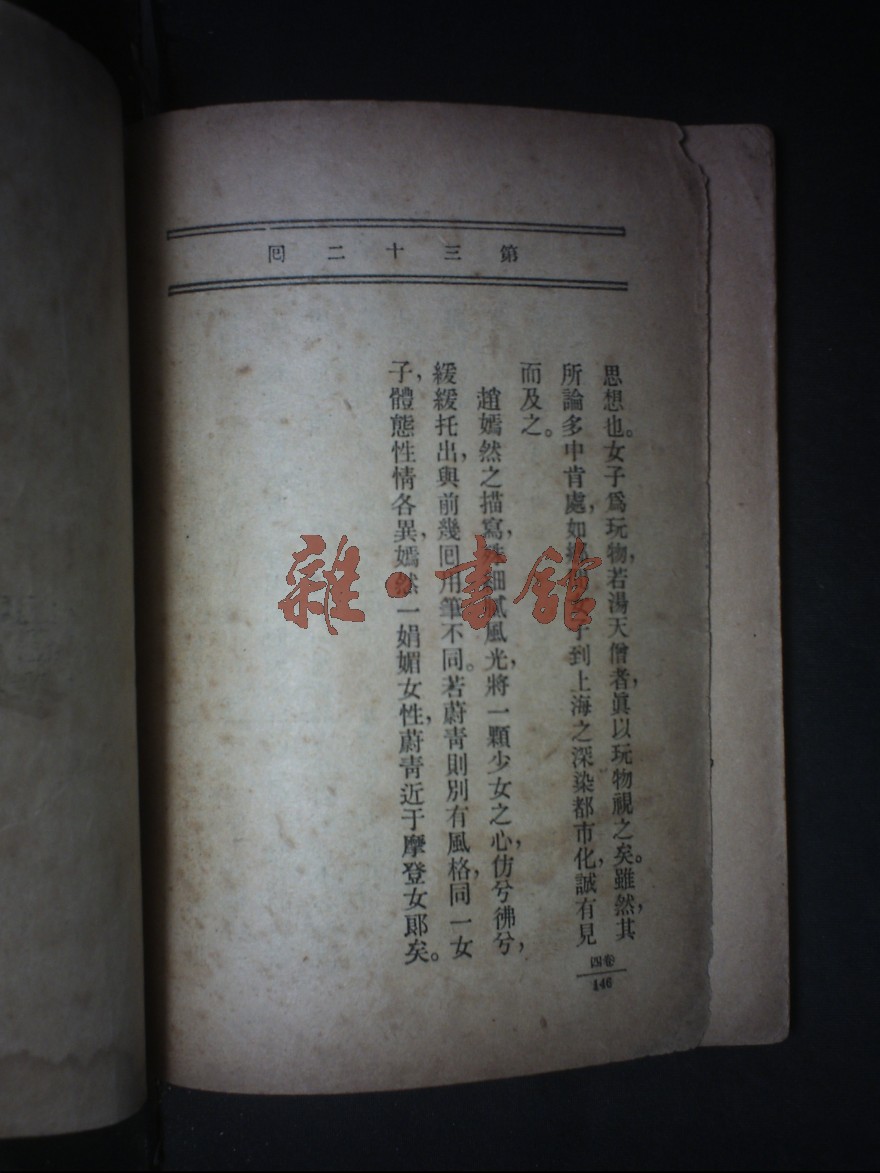 第三十二囘
思想也。女子爲玩物,若湯天僧者,眞以玩物視之矣。雖然,其
所論多中肯處,如子到上海之深染都市化,誠有見
而及之。
趙嫣然之描寫,細膩風光,將一顆少女之心,仿兮彿兮,
緩緩托出,與前幾囘用筆不同。若蔚靑則別有風格,同一女
子,體態性情各異,嫣然一娟媚女性,蔚靑近于摩登女郞矣。
卷四
146
雜·書館